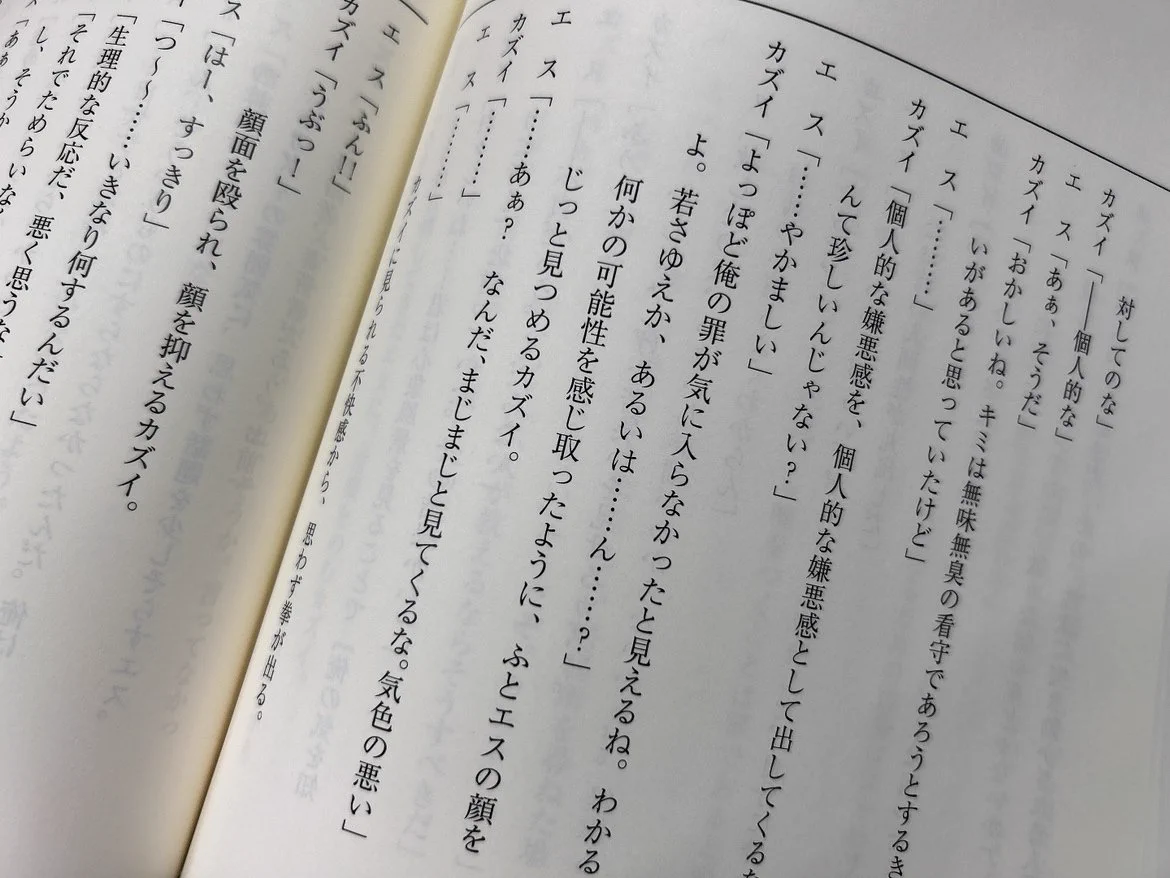 対してのな」
カズイ「――個人的な」
エス「あぁ、そうだ」
カズイ「おかしいね。キミは無味無臭の看守であろうとするき
いがあると思っていたけど」
エス「………」
カズイ「個人的な嫌悪感を、個人的な嫌悪感として出してくるな
んて珍しいんじゃない？」
エス「……やかましい」
カズイ「よっぽど俺の罪が気に入らなかったと見えるね。わかる
よ。若さゆえか、あるいは……ん……？」
何かの可能性を感じ取ったように、ふとエスの顔を
じっと見つめるカズイ。
エス「……あぁ？　なんだ、まじまじと見てくるな。気色の悪い」
カズイ「………」
エス「………」
カズイに見られる不快感から、思わず拳が出る。
エス「ふん!!」
カズイ「うぶっ！」
顔面を殴られ、顔を抑えるカズイ。
ス「はー、すっきり」
「つ〜〜……いきなり何するんだい」
「生理的な反応だ、悪く思うな」
「それでためらいな
し、そうか
「あぁ